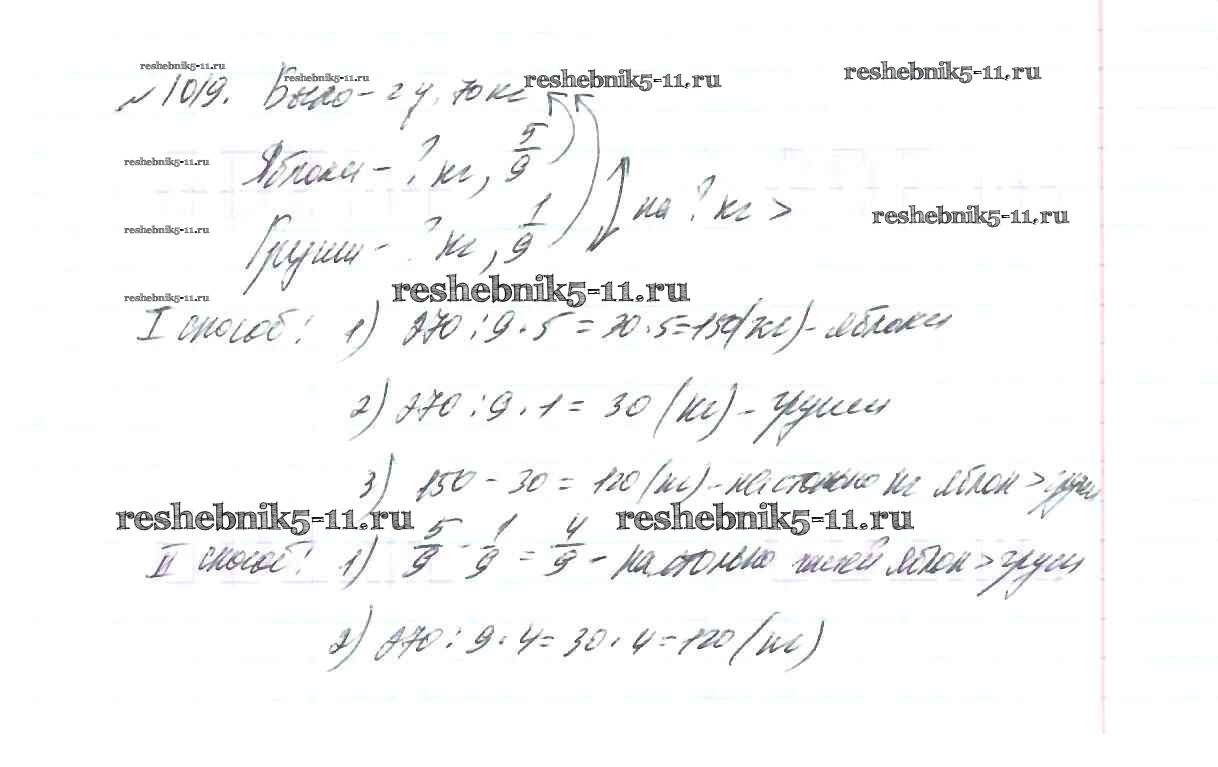 reshebnik5-11.ru
reshebnik5-11.ru
reshebnik5-11.ru
reshebnik5-11.ru
№ 1019. Было - 2 ц. 70 кг
reshebnik5-11.ru
Яблоки - ? кг, 5/9
на ? кг >
reshebnik5-11.ru
reshebnik5-11.ru
Груши - ? кг, 1/9
reshebnik5-11.ru
reshebnik5-11.ru
I способ: 1) 270 : 9 · 5 = 30 · 5 = 150 (кг) - яблоки
2) 270 : 9 · 1 = 30 (кг) - груши
3) 150 - 30 = 120 (кг) - настолько кг яблок > груш
reshebnik5-11.ru reshebnik5-11.ru
II способ: 1) 5/9 - 1/9 = 4/9 - настолько частей яблок > груш
2) 270 : 9 · 4 = 30 · 4 = 120 (кг)